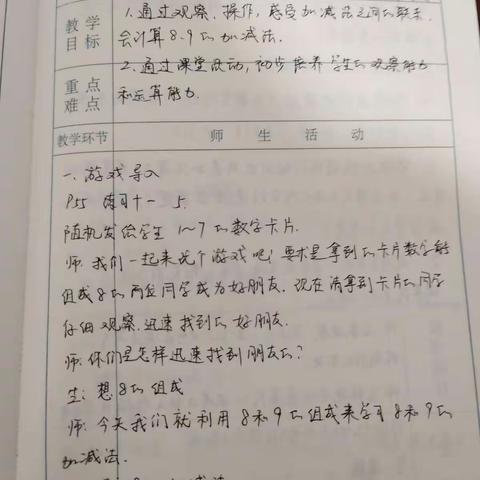 教学目标
1.通过观察、操作,感受加减法之间的联系,
会计算8.9的加减法.
2.通过课堂活动,初步培养学生的观察能力
重点难点
和运算能力.
教学环节 师生活动
一.游戏导入
P55 练习十一 5.
随机发给学生 1~7的数字卡片.
师:我们一起来玩个游戏吧!要求是拿到的卡片数字能
组成8的两位同学成为好朋友.现在请拿到卡片的同学
仔细观察.迅速找到的好朋友.
师:你们是怎样迅速找到朋友的?
生:想8的组成
师:今天我们就利用8和9的组成来学习8和9的
加减法.